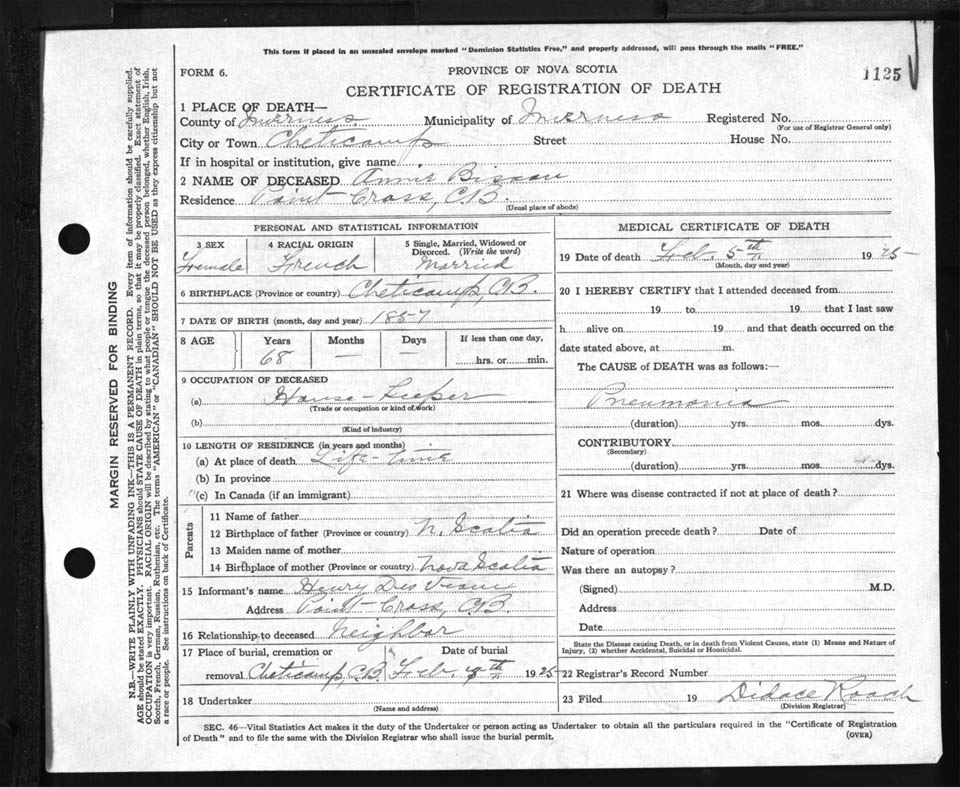 This form if placed in an unsealed envelope marked "Dominion Statistics Free," and properly addressed, will pass through the mails "FREE."
FORM 6.
PROVINCE OF NOVA SCOTIA
1125
CERTIFICATE OF REGISTRATION OF DEATH
1 PLACE OF DEATH—
County of Inverness Municipality of Inverness Registered No.
(For use of Registrar General only)
City or Town Cheticamp Street House No.
If in hospital or institution, give name
2 NAME OF DECEASED Annie
Residence Point-Cross, C.B.
(Usual place of abode)
PERSONAL AND STATISTICAL INFORMATION
3 SEX 4 RACIAL ORIGIN 5 Single, Married, Widowed or Divorced. (Write the word)
Female French Married
6 BIRTHPLACE (Province or country) Cheticamp, C.B.
7 DATE OF BIRTH (month, day and year) 1857
8 AGE Years Months Days If less than one day,
68 — — hrs. or min.
9 OCCUPATION OF DECEASED
(a) House-Keeper
(Trade or occupation or kind of work)
(b)
(Kind of industry)
10 LENGTH OF RESIDENCE (in years and months)
(a) At place of death Life-time
(b) In province
(c) In Canada (if an immigrant)
Parents
11 Name of father
12 Birthplace of father (Province or country) N. Scotia
13 Maiden name of mother
14 Birthplace of mother (Province or country) Nova Scotia
15 Informant's name Henry
Address Point-Cross, C.B.
16 Relationship to deceased Neighbor
17 Place of burial, cremation or Date of burial
removal Cheticamp, C.B. Feb. 9th, 1925
18 Undertaker
(Name and address)
MEDICAL CERTIFICATE OF DEATH
19 Date of death Feb. 5th 1925
(Month, day and year)
20 I HEREBY CERTIFY that I attended deceased from
19 to 19 that I last saw
h alive on 19 and that death occurred on the
date stated above, at m.
The CAUSE of DEATH was as follows:—
Pneumonia
(duration) yrs. mos. dys.
CONTRIBUTORY
(Secondary)
(duration) yrs. mos. dys.
21 Where was disease contracted if not at place of death?
Did an operation precede death? Date of
Nature of operation
Was there an autopsy?
(Signed) M.D.
Address
Date
State the Disease causing Death, or in death from Violent Causes, state (1) Means and Nature of
Injury, (2) whether Accidental, Suicidal or Homicidal.
22 Registrar's Record Number
23 Filed 19 Didace Roach
(Division Registrar)
SEC. 46—Vital Statistics Act makes it the duty of the Undertaker or person acting as Undertaker to obtain all the particulars required in the "Certificate of Registration
of Death" and to file the same with the Division Registrar who shall issue the burial permit.
(OVER)
MARGIN RESERVED FOR BINDING
N.B.—WRITE PLAINLY, WITH UNFADING INK—THIS IS A PERMANENT RECORD. Every item of information should be carefully supplied.
AGE should be stated EXACTLY. PHYSICIANS should STATE CAUSE OF DEATH in plain terms, so that it may be properly classified. Exact statement of
OCCUPATION is very important. RACIAL ORIGIN will be described by stating to what people or tongue the deceased person belonged, whether English, Irish,
Scotch, French, German, Russian, Ruthenian, etc. The terms "AMERICAN" or "CANADIAN" SHOULD NOT BE USED as they express citizenship but not
a race or people. See instructions on back of Certificate.